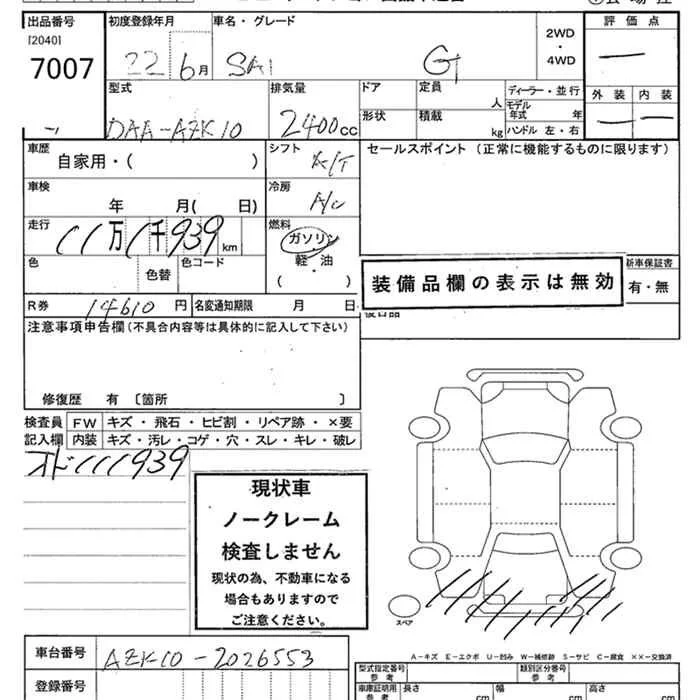 出品番号 初度登録年月 車名・グレード 評価点
[2040]
7007 22 6月 SAI G 2WD・4WD 一
型式 排気量 ドア 定員 人 ディーラー・並行 外装 内装
DAA-AZK10 2400cc 形状 積載 kg モデル年式 年 ハンドル 左・右 一 一
車歴 自家用・( ) シフト A/T セールスポイント (正常に機能するものに限ります)
車検 年 月( 日) 冷房 A/C
走行 11万1千939km 燃料 ガソリン 軽・油 ( )
色 色替 色コード 装備品欄の表示は無効 新車保証書 有・無
R券 14610円 名変通知期限 月 日
注意事項申告欄(不具合内容等は具体的に記入して下さい)
修復歴 有 〔箇所 〕
検査員 FW キズ・飛石・ヒビ割・リペア跡・×要
記入欄 内装 キズ・汚レ・コゲ・穴・スレ・キレ・破レ
オド111939
現状車
ノークレーム
検査しません
現状の為、不動車になる
場合もありますので
ご注意ください。
スペア
A-キズ E-エクボ U-凹み W-補修跡 S-サビ C-腐食 XX-交換済
車台番号 AZK10-2026553
型式指定番号 類別区分番号
登録番号 車庫証明用参考 長さ cm 幅 cm 高さ cm
参考